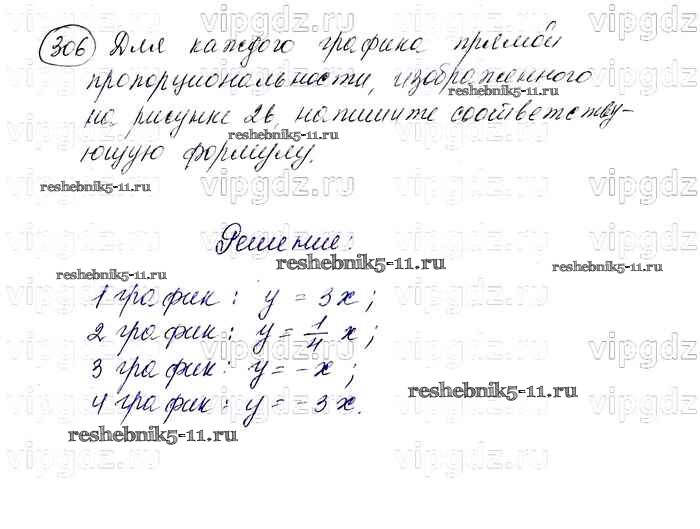 306 Для каждого графика прямой
пропорциональности, изображенного
на рисунке 26, напишите соответству-
ющую формулу.
Решение:
1 график: y = 3x;
2 график: y = 1/4 x;
3 график: y = -x;
4 график: y = -3x.
reshebnik5-11.ru
reshebnik5-11.ru
reshebnik5-11.ru
reshebnik5-11.ru
reshebnik5-11.ru
reshebnik5-11.ru
reshebnik5-11.ru
vipgdz.ru